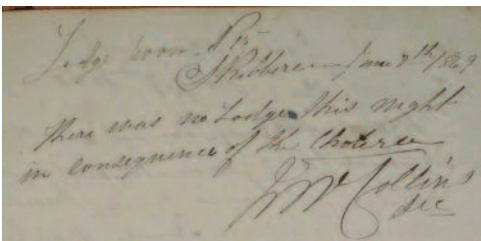 Lodge room No 15
Skibbereen June 8th/849
There was no Lodge this night
in consequence of the Cholera
Collins
Sec